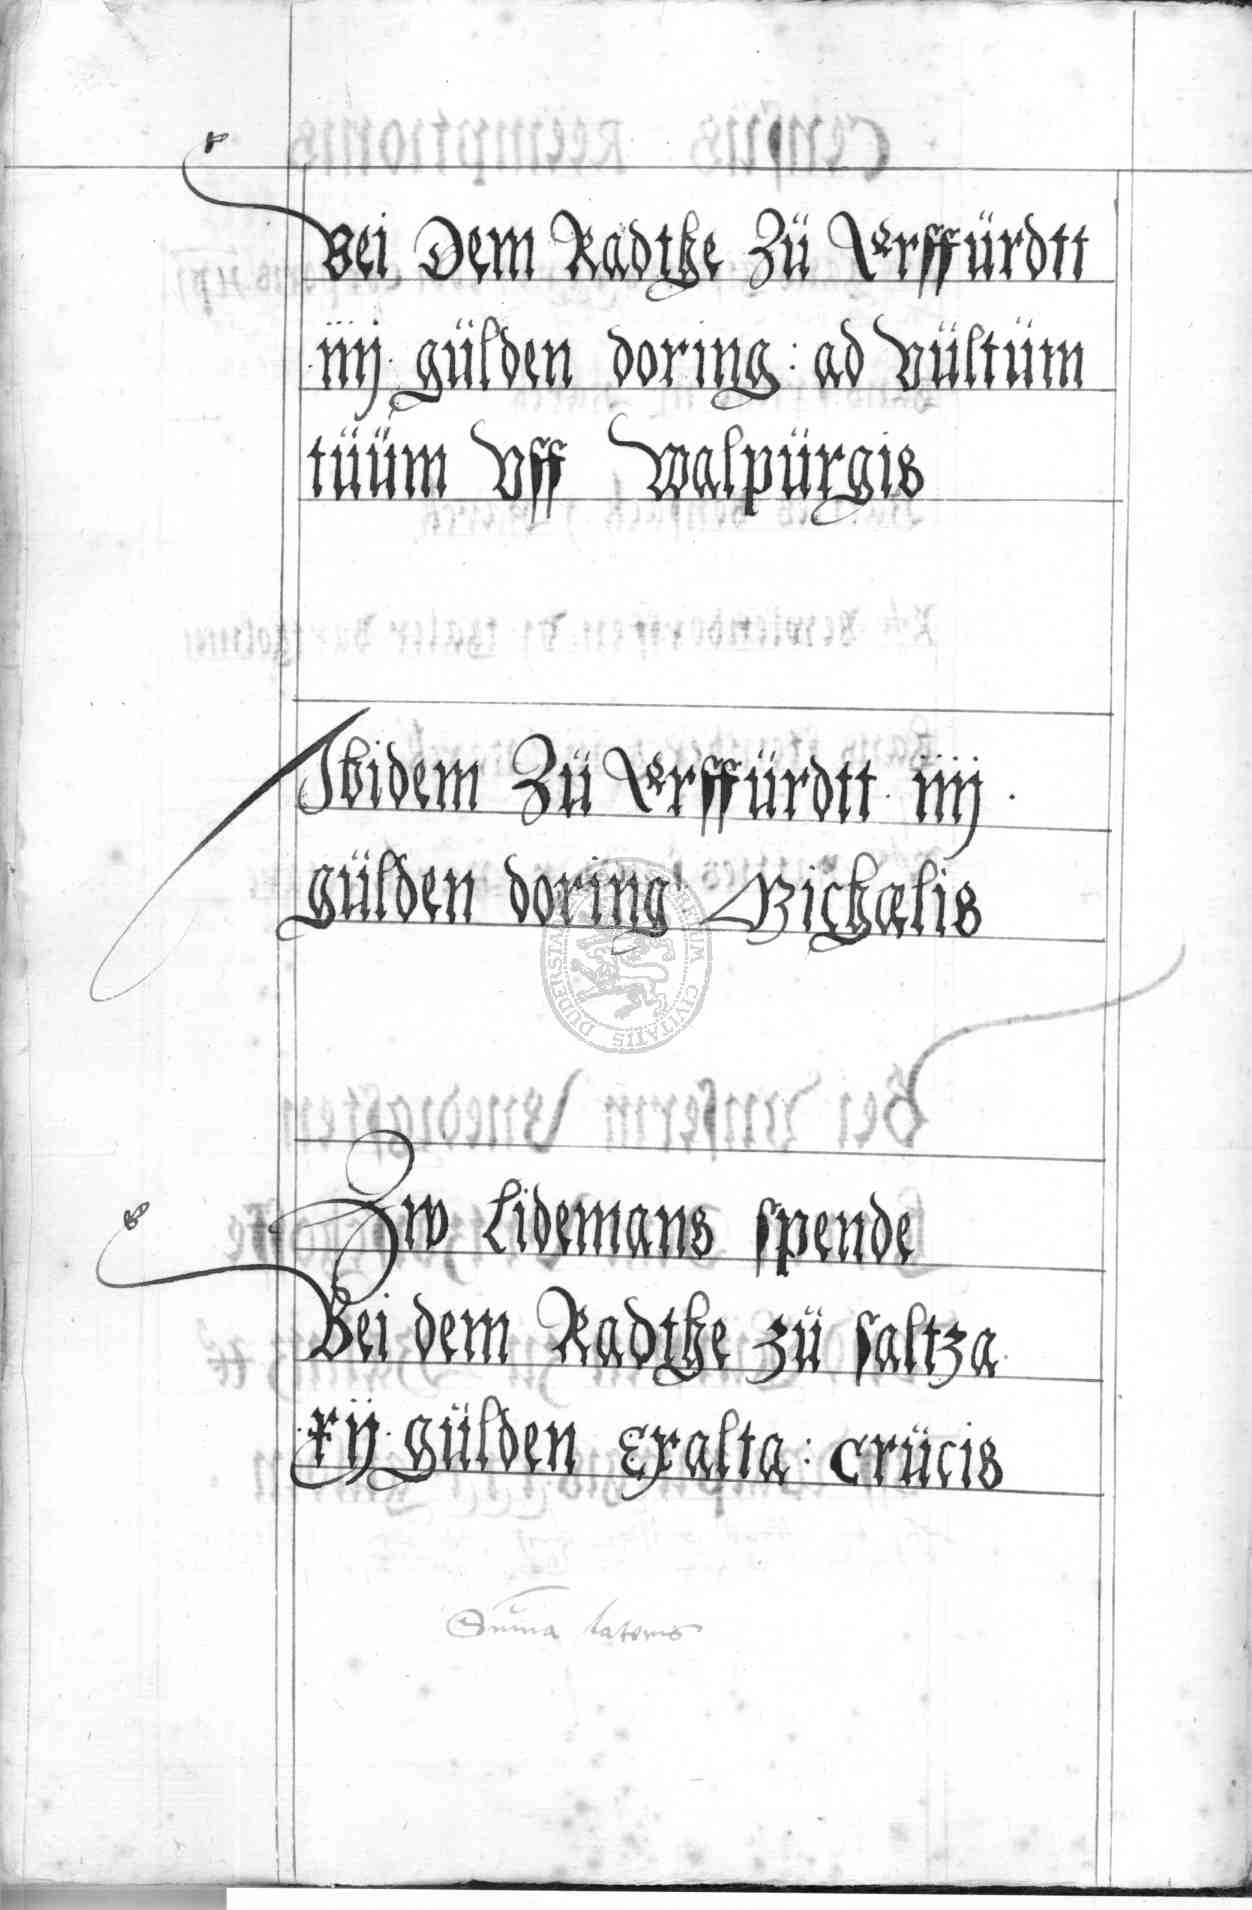 Bei Dem Radthe Zü Erffürdtt
iiij. gülden doring: ad Vültüm
tüüm Vff Walpürgis
Ibidem Zü Erffürdtt iiij.
gülden doring Michaelis
Zw Lidemans spende
Bei dem Radthe zü saltza.
xij. gülden Exalta: crücis
Suma lateris